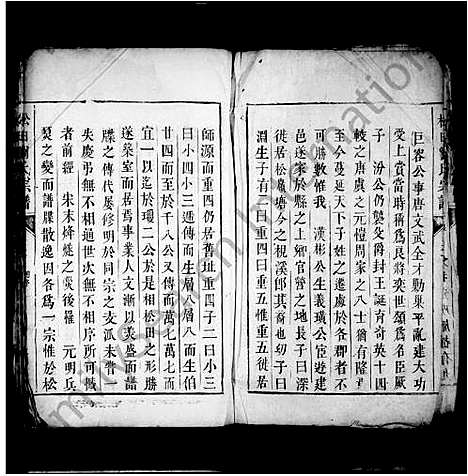 巨容公事唐文武全才勤巢平亂建大功
受上賞當時稱爲良將奕世頌爲名臣厥
子汾公仍襲父爵封王誕育奇英十四
較之唐虞之元愷周家之八士猶有隆
至今蔓延天下子姓之遷處於各郡者不
可勝數惟我漢彬公生義璜公臣遊建
邑遂家於縣之上鄉官營之地長子曰深
徙居松鳳塘今之視溪即其裔也幼子曰
淵生子二曰重四曰重五惟重五徙居
師源而重四仍居舊址重四子二曰小三
曰小四小三遞傳而生層八層八而生伯
廿四而至於千八公又傳而萬七萬七而
宜一以迄於環二公於是相松田之形勝
遂築室而居焉事業人文漸以美盛而譜
牒之傳代屢修明於同宗之支派未嘗一
失慶弔無不相通世次無不相序所可慨
者前經宋末烽燧之災後罹元明兵
燹之變而譜牒散逸因各爲一宗惟於松